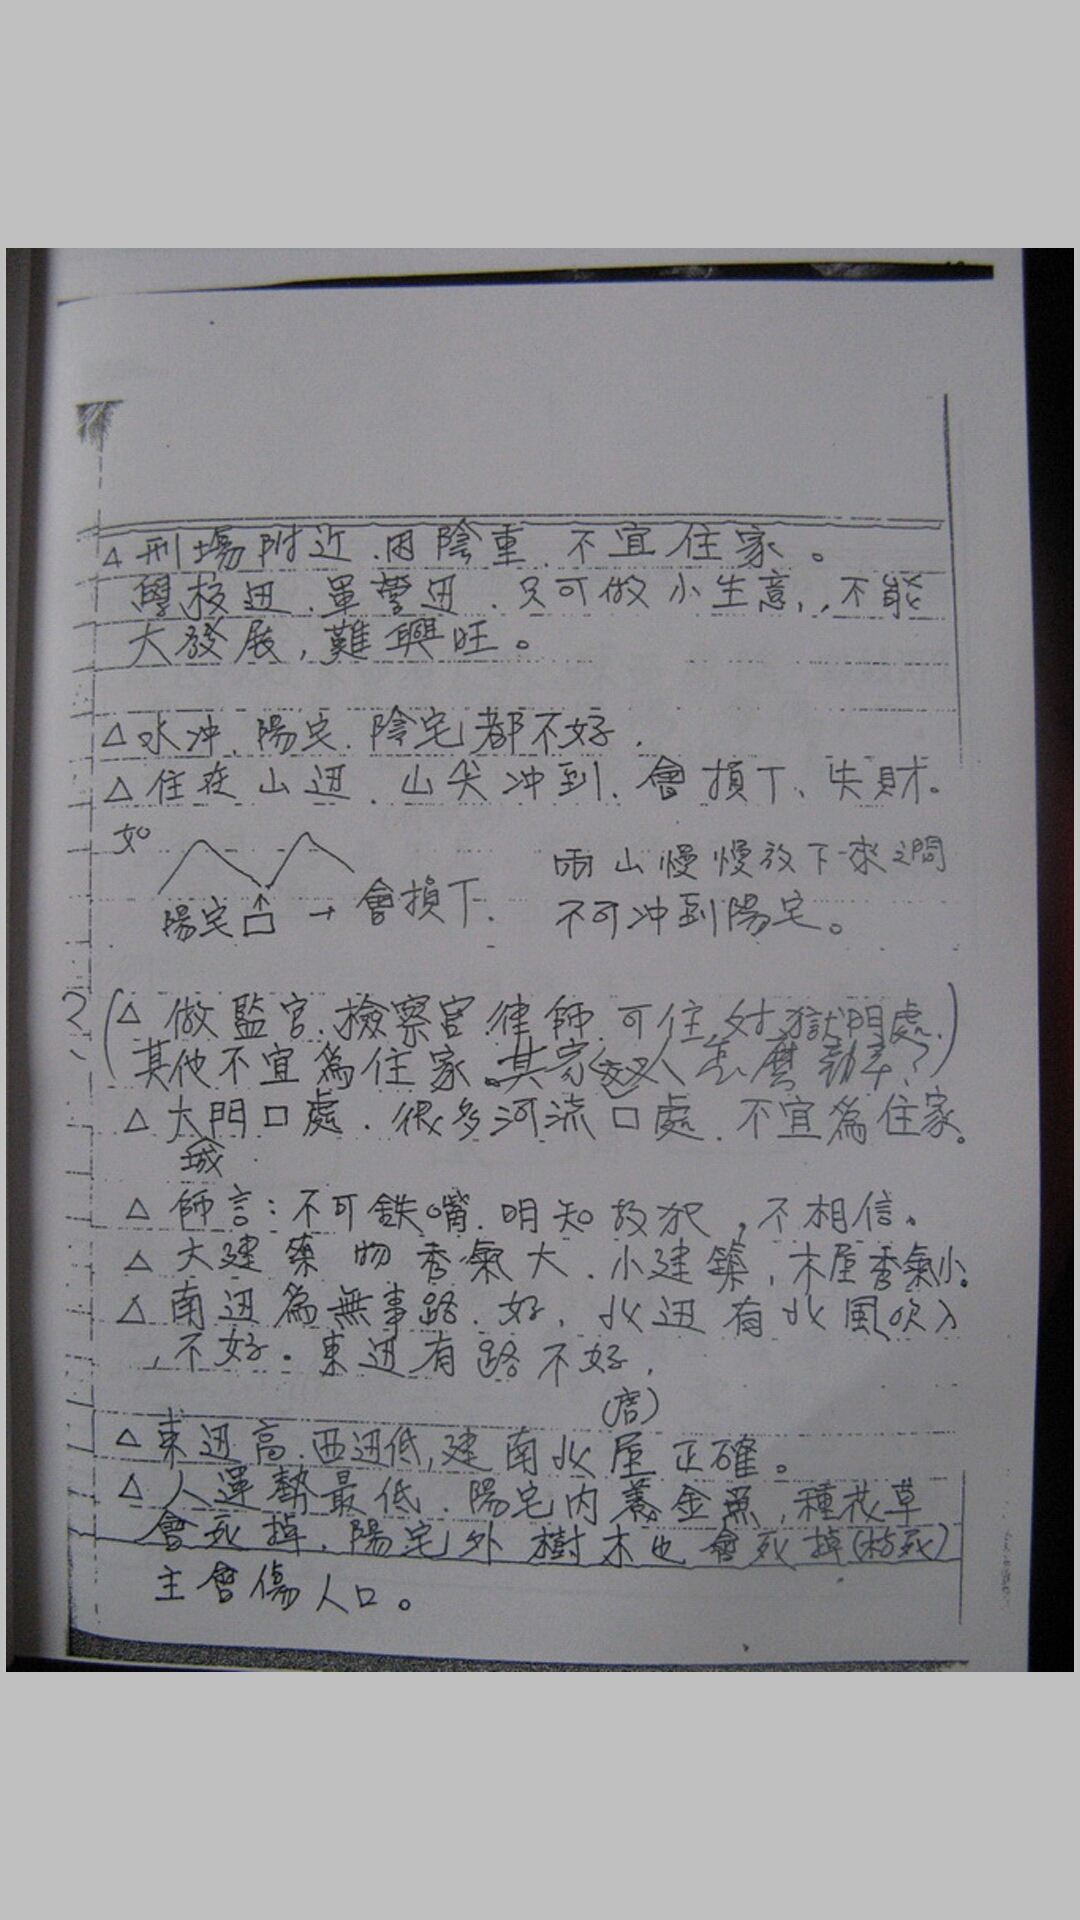 △刑場附近.因陰重.不宜住家。
學校边.單營边.只可做小生意,,不能
大發展,難興旺。
△水沖.陽宅.陰宅都不好.
△住在山边.山尖冲到.會損丁、失財。
如
兩山慢慢放下來之間
陽宅口 → 會損丁.
不可冲到陽宅。
(△ 做監官.檢察官.律師.可住.对獄門處.)
其他不宜為住家。其完 人怎麼 ?
△大門口處.很多河流口處.不宜為住家。
城
△ 師言:不可鉄嘴.明知故犯,不相信。
△ 大建築物香氣大.小建築,木屋香氣小。
△ 南边為無事路.好.北边有北風吹入
,不好。東边有路不好.
△東边高.西边低,建南北屋正確。
△人運勢最低.陽宅内養金魚,種花草
會死掉.陽宅外樹木也會死掉(枯死)
主會傷人口。